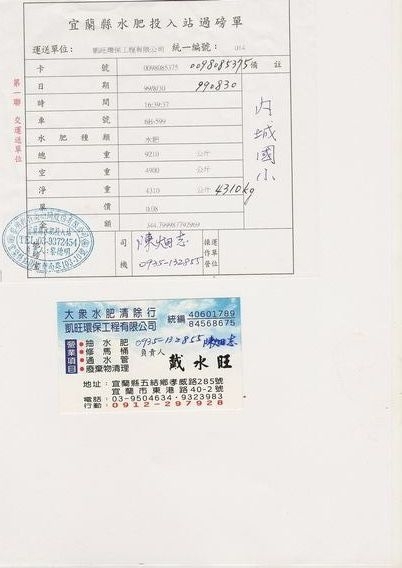 宜蘭縣水肥投入站過磅單
運送單位: 凱旺環保工程有限公司 統一編號: 014
卡號 0098085375 0098085375 備註
日期 99/8/30 990830
時間 16:39:37
車號 6H-599
水肥種類 水肥
總重 9210 公斤
空重 4900 公斤
淨重 4310 公斤 4310kg
單 0.08
金額 344.799987792969
內城國小
第一聯 交運送單位
TEL:03-9372454
司機 陳畑志
0935-132855
操作單位
大眾水肥清除行
凱旺環保工程有限公司
統編 40601789
84568675
營業項目
抽水肥
修馬桶
通水管
廢棄物清理
0935-132855 陳畑志
負責人
戴水旺
地址: 宜蘭縣五結鄉孝威路285號
宜蘭市東港路40-2號
電話: 03-9504634·9323983
行動: 0912-297928